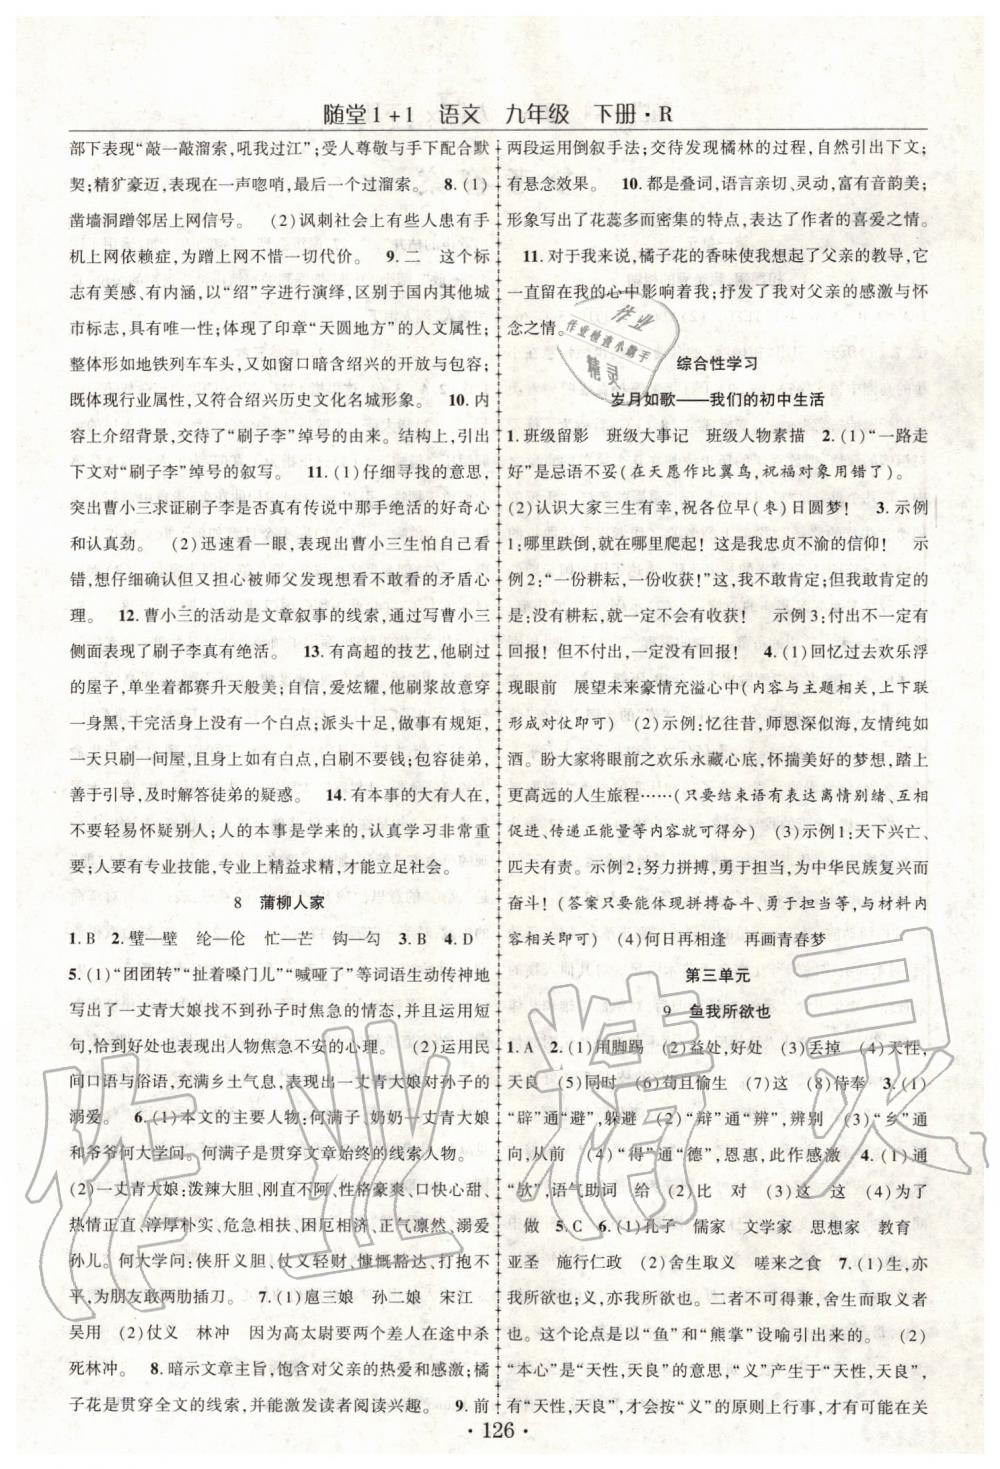 随堂1+1 语文 九年级 下册·R
部下表现“敲一敲溜索,吼我过江”;受人尊敬与手下配合默
契;精犷豪迈,表现在一声唿哨,最后一个过溜索。 8.(1)
凿墙洞蹭邻居上网信号。 (2)讽刺社会上有些人患有手
机上网依赖症,为蹭网不惜一切代价。 9.二 这个标
志有美感、有内涵,以“绍”字进行演绎,区别于国内其他城
市标志,具有唯一性;体现了印章“天圆地方”的人文属性;
整体形如地铁列车车头,又如窗口暗含绍兴的开放与包容;
既体现行业属性,又符合绍兴历史文化名城形象。 10.内
容上介绍背景,交待了“刷子李”绰号的由来。结构上,引出
下文对“刷子李”绰号的叙写。 11.(1)仔细寻找的意思,
突出曹小三求证刷子李是否真有传说中那手绝活的好奇心
和认真劲。 (2)迅速看一眼,表现出曹小三生怕自己看
错,想仔细确认但又担心被师父发现想看不敢看的矛盾心
理。 12.曹小三的活动是文章叙事的线索,通过写曹小三
侧面表现了刷子李真有绝活。 13.有高超的技艺,他刷过
的屋子,单坐着都赛升天般美;自信,爱炫耀,他刷浆故意穿
一身黑,干完活身上没有一个白点;派头十足,做事有规矩,
一天只刷一间屋,且身上如有白点,白刷不要钱;包容徒弟,
善于引导,及时解答徒弟的疑惑。 14.有本事的大有人在,
不要轻易怀疑别人;人的本事是学来的,认真学习非常重
要;人要有专业技能,专业上精益求精,才能立足社会。
8 蒲柳人家
1.B 2.璧—壁 纶—伦 忙—芒 钩—勾 3.B 4.D
5.(1)“团团转”“扯着嗓门儿”“喊哑了”等词语生动传神地
写出了一丈青大娘找不到孙子时焦急的情态,并运用短
句,恰到好处地表现出人物焦急不安的心理。 (2)运用民
间口语与俗语,充满乡土气息,表现了一丈青大娘对孙子的
溺爱。 6.(1)本文的主要人物:何满子、奶奶一丈青大娘
和爷爷何大学问。何满子是贯穿文章始终的线索人物。
(2)一丈青大娘:泼辣大胆、刚直不阿、性格豪爽、口快心甜、
热情正直、淳厚朴实、危急相扶、困厄相济、正气凛然、溺爱
孙儿。何大学问:侠肝义胆、仗义轻财、慷慨豁达、打抱不
平,为朋友敢两肋插刀。 7.(1)扈三娘 孙二娘 宋江
吴用 (2)仗义 林冲 因为高太尉要两个差人在途中杀
死林冲。 8.暗示文章主旨,饱含对父亲的热爱和感激;橘
子花是贯穿全文的线索,并能激发读者阅读兴趣。 9.前
两段运用倒叙手法;交待发现橘林的过程,自然引出下文;
有悬念效果。 10.都是叠词,语言亲切、灵动,富有音韵美;
形象写出了花蕊多而密集的特点,表达了作者的喜爱之情。
11.对于我来说,橘子花的香味使我想起了父亲的教导,它
一直留在我的心中影响着我;抒发了我对父亲的感激与怀
念之情。
综合性学习
岁月如歌——我们的初中生活
1.班级留影 班级大事记 班级人物素描 2.(1)“一路走
好”是忌语不妥(在天愿作比翼鸟,祝福对象用错了)。
(2)认识大家三生有幸,祝各位早(枣)日圆梦! 3.示例
1:哪里跌倒,就在哪里爬起!这是我忠贞不渝的信仰! 示
例2:“一份耕耘,一份收获!”这,我不敢肯定;但我敢肯定的
是:没有耕耘,就一定不会有收获! 示例3:付出不一定有
回报!但不付出,就一定没有回报! 4.(1)回忆过去欢乐浮
现眼前 展望未来豪情充溢心中(内容与主题相关,上下联
形成对仗即可) (2)示例:忆往昔,师恩深似海,友情纯如
酒。盼大家将眼前的欢乐永藏心底,怀揣美好的梦想,踏上
更高远的人生旅程……(只要结束语有表达离情别绪、互相
促进、传递正能量等内容就可得分) (3)示例1:天下兴亡、
匹夫有责。示例2:努力拼搏,勇于担当,为中华民族复兴而
奋斗!(答案只要能体现拼搏奋斗、勇于担当等,与材料内
容相关即可) (4)何日再相逢 再画青春梦
第三单元
9 鱼我所欲也
1.A 2.(1)用脚踢 (2)益处,好处 (3)丢掉 (4)天性,
天良 (5)同时 (6)苟且偷生 (7)这 (8)侍奉 3.(1)
“辟”通“避”,躲避 (2)“辩”通“辨”,辨别 (3)“乡”通
向,从前 (4)“得”通“德”,恩惠,此作感激 4.(1)通
“欤”,语气助词 给 (2)比 对 (3)这 这 (4)为了
做 5.C 6.(1)孔子 儒家 文学家 思想家 教育
亚圣 施行仁政 (2)舍生取义 嗟来之食 7.(1)生,亦
我所欲也;义,亦我所欲也。二者不可得兼,舍生而取义者
也。这个论点是以“鱼”和“熊掌”设喻引出来的。 (2)
“本心”是“天性,天良”的意思,“义”产生于“天性,天良”,
有“天性,天良”,才有“义”,按照“义”的原则上行事,才有可能在关
·126·
作业
作业检查小助手
精灵
作业精灵